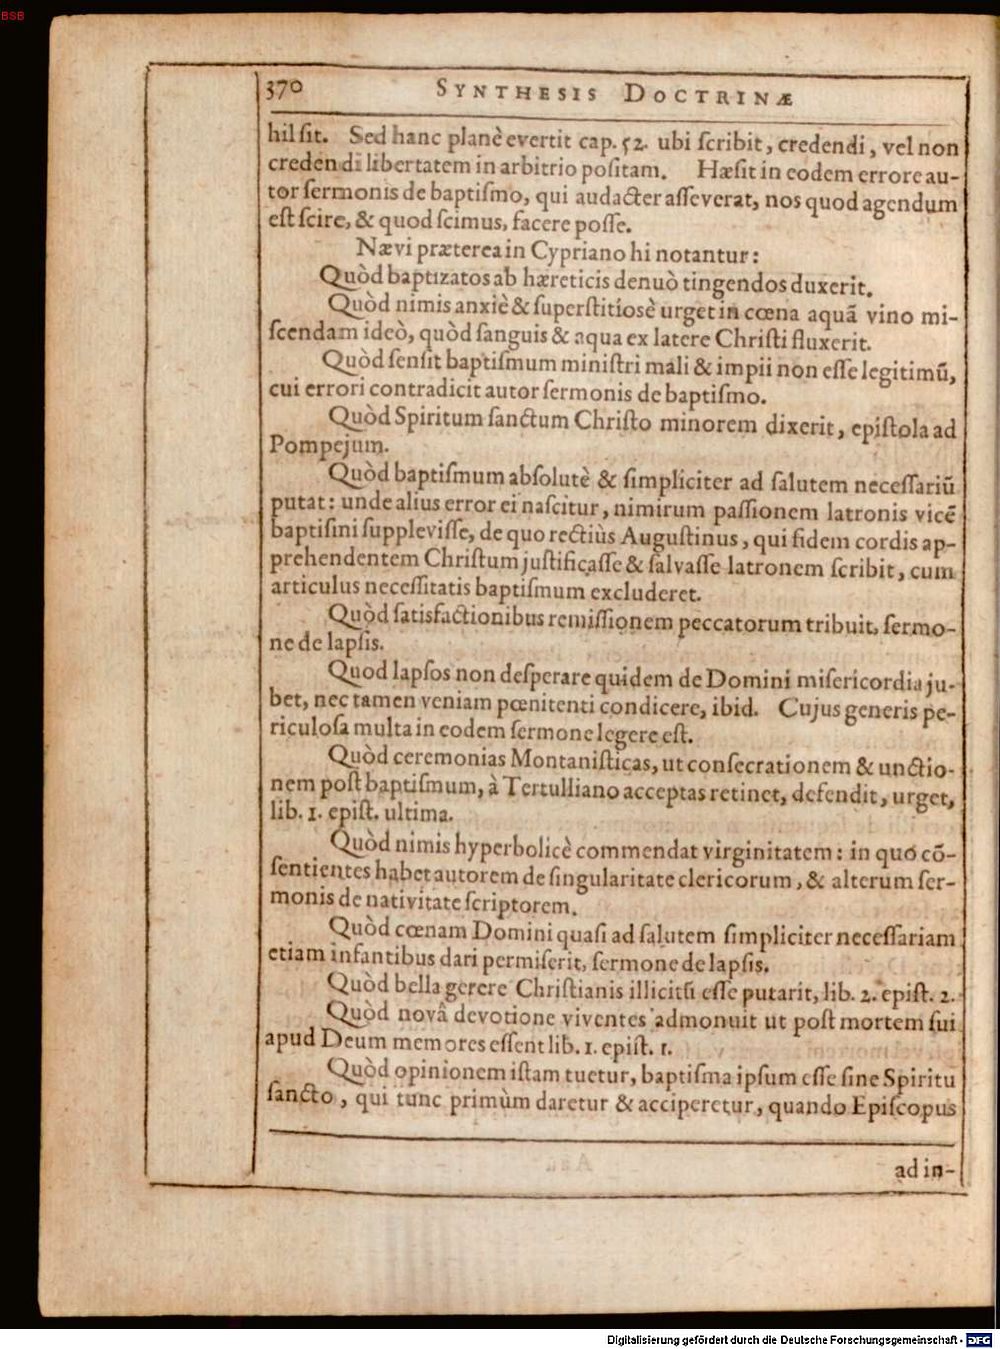 BSB
370 SYNTHESIS DOCTRINÆ
hil ſit. Sed hanc planè evertit cap. 52. ubi ſcribit, credendi, vel non
credendi libertatem in arbitrio poſitam. Hæſit in eodem errore au-
tor ſermonis de baptiſmo, qui audacter aſſeverat, nos quod agendum
eſt ſcire, & quod ſcimus, facere poſſe.
Nævi præterea in Cypriano hi notantur:
Quòd baptizatos ab hæreticis denuò tingendos duxerit.
Quòd nimis anxiè & ſuperſtitioſè urget in cœna aquã vino mi-
ſcendam ideò, quòd ſanguis & aqua ex latere Chriſti fluxerit.
Quòd ſenſit baptiſmum miniſtri mali & impii non eſſe legitimũ,
cui errori contradicit autor ſermonis de baptiſmo.
Quòd Spiritum ſanctum Chriſto minorem dixerit, epiſtola ad
Pompejum.
Quòd baptiſmum abſolutè & ſimpliciter ad ſalutem neceſſariũ
putat: unde alius error ei naſcitur, nimirum paſſionem latronis vicẽ
baptiſmi ſuppleviſſe, de quo rectiùs Auguſtinus, qui fidem cordis ap-
prehendentem Chriſtum juſtificaſſe & ſalvaſſe latronem ſcribit, cum
articulus neceſſitatis baptiſmum excluderet.
Quòd ſatisfactionibus remiſſionem peccatorum tribuit, ſermo-
ne de lapſis.
Quod lapſos non deſperare quidem de Domini miſericordia ju-
bet, nec tamen veniam pœnitenti condicere, ibid. Cujus generis pe-
riculoſa multa in eodem ſermone legere eſt.
Quòd ceremonias Montaniſticas, ut conſecrationem & unctio-
nem poſt baptiſmum, à Tertulliano acceptas retinet, defendit, urget,
lib. 1. epiſt. ultima.
Quòd nimis hyperbolicè commendat virginitatem: in quo cõ-
ſentientes habet autorem de ſingularitate clericorum, & alterum ſer-
monis de nativitate ſcriptorem.
Quòd cœnam Domini quaſi ad ſalutem ſimpliciter neceſſariam
etiam infantibus dari permiſerit, ſermone de lapſis.
Quòd bella gerere Chriſtianis illicitũ eſſe putarit, lib. 2. epiſt. 2.
Quòd novâ devotione viventes admonuit ut poſt mortem ſui
apud Deum memores eſſent lib. 1. epiſt. 1.
Quòd opinionem iſtam tuetur, baptiſma ipſum eſſe ſine Spiritu
ſancto, qui tunc primùm daretur & acciperetur, quando Epiſcopus
ad in-
Digitalisierung gefördert durch die Deutsche Forschungsgemeinschaft - DFG